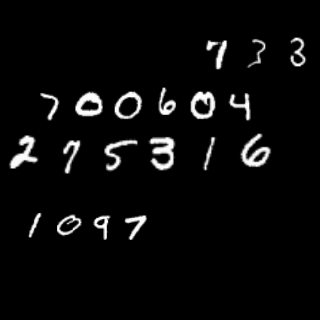 733
700604
275316
1097